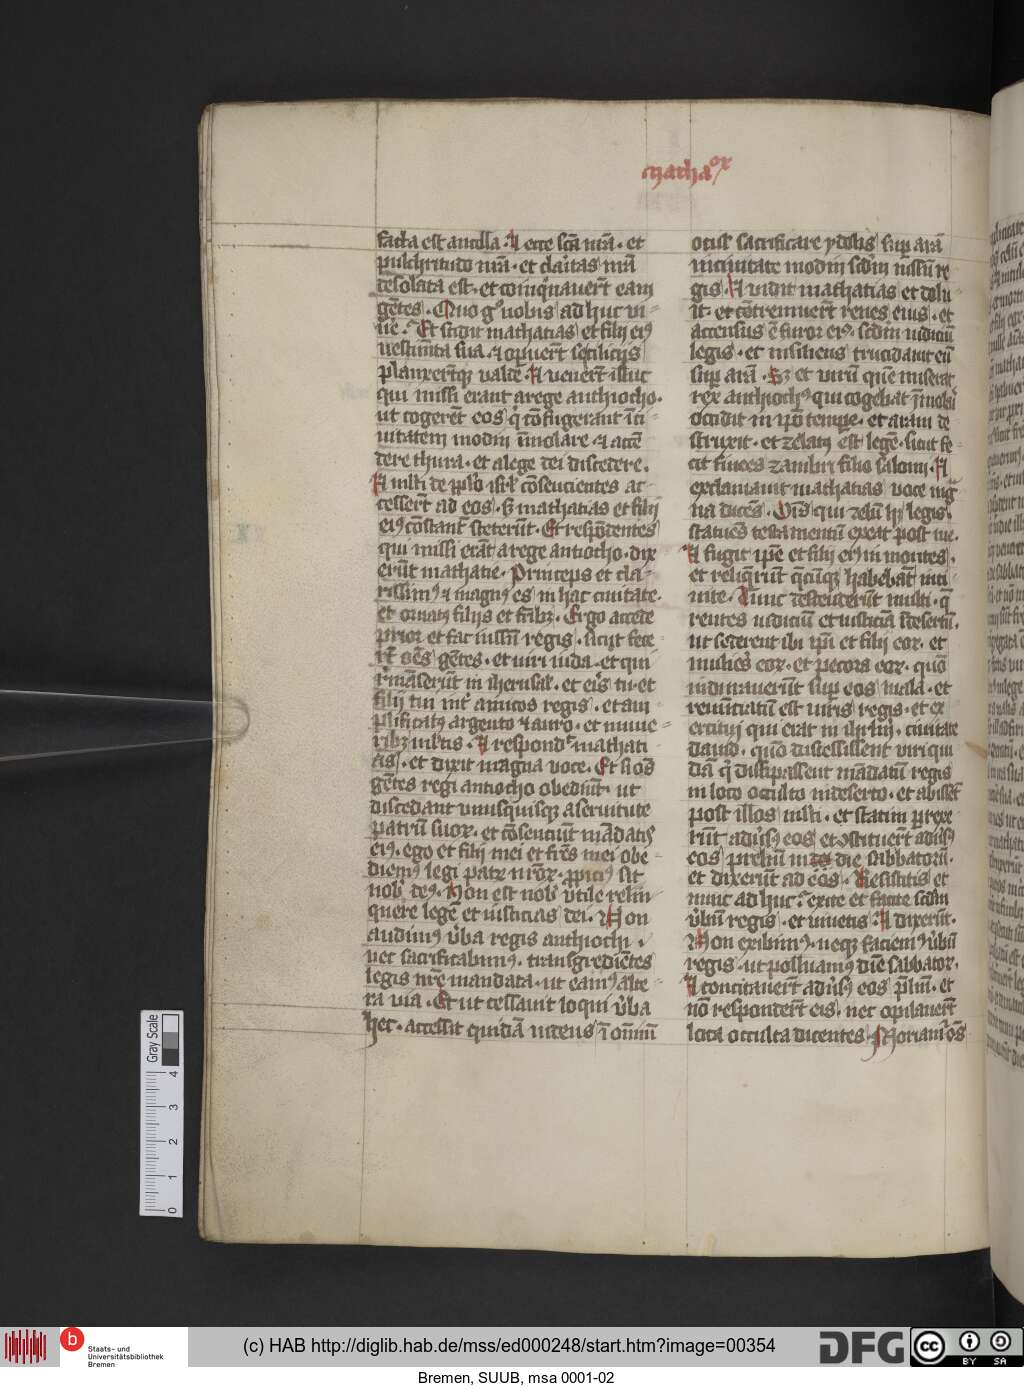 machaꝝ
facta est ancilla. Et ecce sc̄a nr̄a. et
pulchritudo nr̄a. et claritas nr̄a
desolata est. et coinq̇nauert̄ eam
gētes. Quo gͦ nobis ad huc vi-
ue᷒. Et scidit mathatias et filij eiꝰ
vestim̄ta sua. ⁊ opuert̄ se cilicijs
planxert̄qꝫ valde. Et venert̄ illuc
qui missi erant a rege anthiocho.
ut cogerēt eos q̇ cōfugerant ī ci-
uitatem modin īmolare ⁊ accē
dere thura. et a lege dei discedere.
Et ml̄ti de pplo isrl̄ cōsencientes ac-
cessert̄ ad eos. sꝫ mathatias et filij
eiꝰ cōstant᷒ steterūt. Et respōdentes
qui missi erāt a rege antiocho. dix
erūt mathatie. Princeps et cla-
rissimꝰ ⁊ magnꝰ es in hac ciuitate.
et ornatꝰ filijs et fr̄ibꝫ. Ergo accede
prior et fac iussū regis. sicut fece
rt̄ oēs gētes. et viri iuda. et qui
r̄māserūt in iherusal᷒. et eis̄ tu. et
filij tui int᷒ amicos regis. et am
plificatꝰ argento ⁊ auro. et mune-
ribꝫ ml̄tis. Et respond᷒ mathati
as. et dixit magna voce. Et si oēs
gētes regi antiocho obediūt. ut
discedant vnusquisqꝫ a seruitute
patrū suoꝝ. et cōsenciūt mādatis
eiꝰ. ego et filij mei et fr̄es mei obe-
diemꝰ legi patꝝ nr̄oꝝ. ꝓpiciꝰ sit
nob᷒ deꝰ. Non est nob᷒ vtile relin-
quere legē et iusticias dei. Non
audimꝰ v̄ba regis anthiochi.
nec sacrificabimꝰ. transgrediētes
legis nr̄e mandata. ut eamꝰ alte-
ra via. Et ut cessauit loqui v̄ba
hec. accessit quidā iudeus ī om̄iū
oculis sacrificare ydolis sup arā
in ciuitate modin scdm̄ iussū re
gis. Et vidit mathatias et dolu-
it. et cōtremuert̄ renes eius. et
accensus ē furor eiꝰ. scdm iudiciū
legis. et insiliens trucidauit eū
sup arā. Sꝫ et virū quē miserat
rex anthiochꝰ qui cogebat īmolar᷒
occidit in ip̄o tempe. et aram de
struxit. et zelatꝰ est legē. sicut fe-
cit finees zambri filio salomi. Et
exclamauit mathatias voce mag
na dicēs. Oīs qui zelū hꝫ legis.
statuēs testamentū exeat post me.
Et fugit ip̄e et filij eiꝰ in montes.
et reliq̄rūt q̄cūqꝫ habebāt in ci
uite. Tunc descenderūt multi. q̄
rentes iudiciū et iusticiā ī desertū.
ut sederent ibi ip̄i et filij eoꝝ. et
mulieēs eoꝝ. et pecora eoꝝ. quō
inūdauerūt sup eos mala. et
renūciatū est viris regis. et ex
ercitui qui erat in ihrlm̄. ciuitate
dauid. quō discessissent viri qui
dā q̇ dissipassent mādatū regis
in loco occulto in deserto. et abisset
post illos ml̄ti. et statim prexe
rūt ad eos et ꝯstituert̄ adūsꝰ
eos preliū in die sabbatoꝝ.
et dixerūt ad eos. Resistitis et
nunc ad huc᷒. exite et facite scdm
v̄bū regis. et viuetis. Et dixerūt.
Non exibimꝰ. neqꝫ faciemꝰ v̄bū
regis. ut polluamꝰ diē sabbatoꝝ.
Et concitauert̄ adūsꝰ eos pl̄iū. et
nō respondert̄ eis. nec opilauert̄
loca occulta dicentes. Moriam᷒ oēs
Gray Scale
4
3
2
1
0
b
Staats- und
Universitätsbibliothek
Bremen
(c) HAB http://diglib.hab.de/mss/ed000248/start.htm?image=00354
DFG
cc BY SA
Bremen, SUUB, msa 0001-02